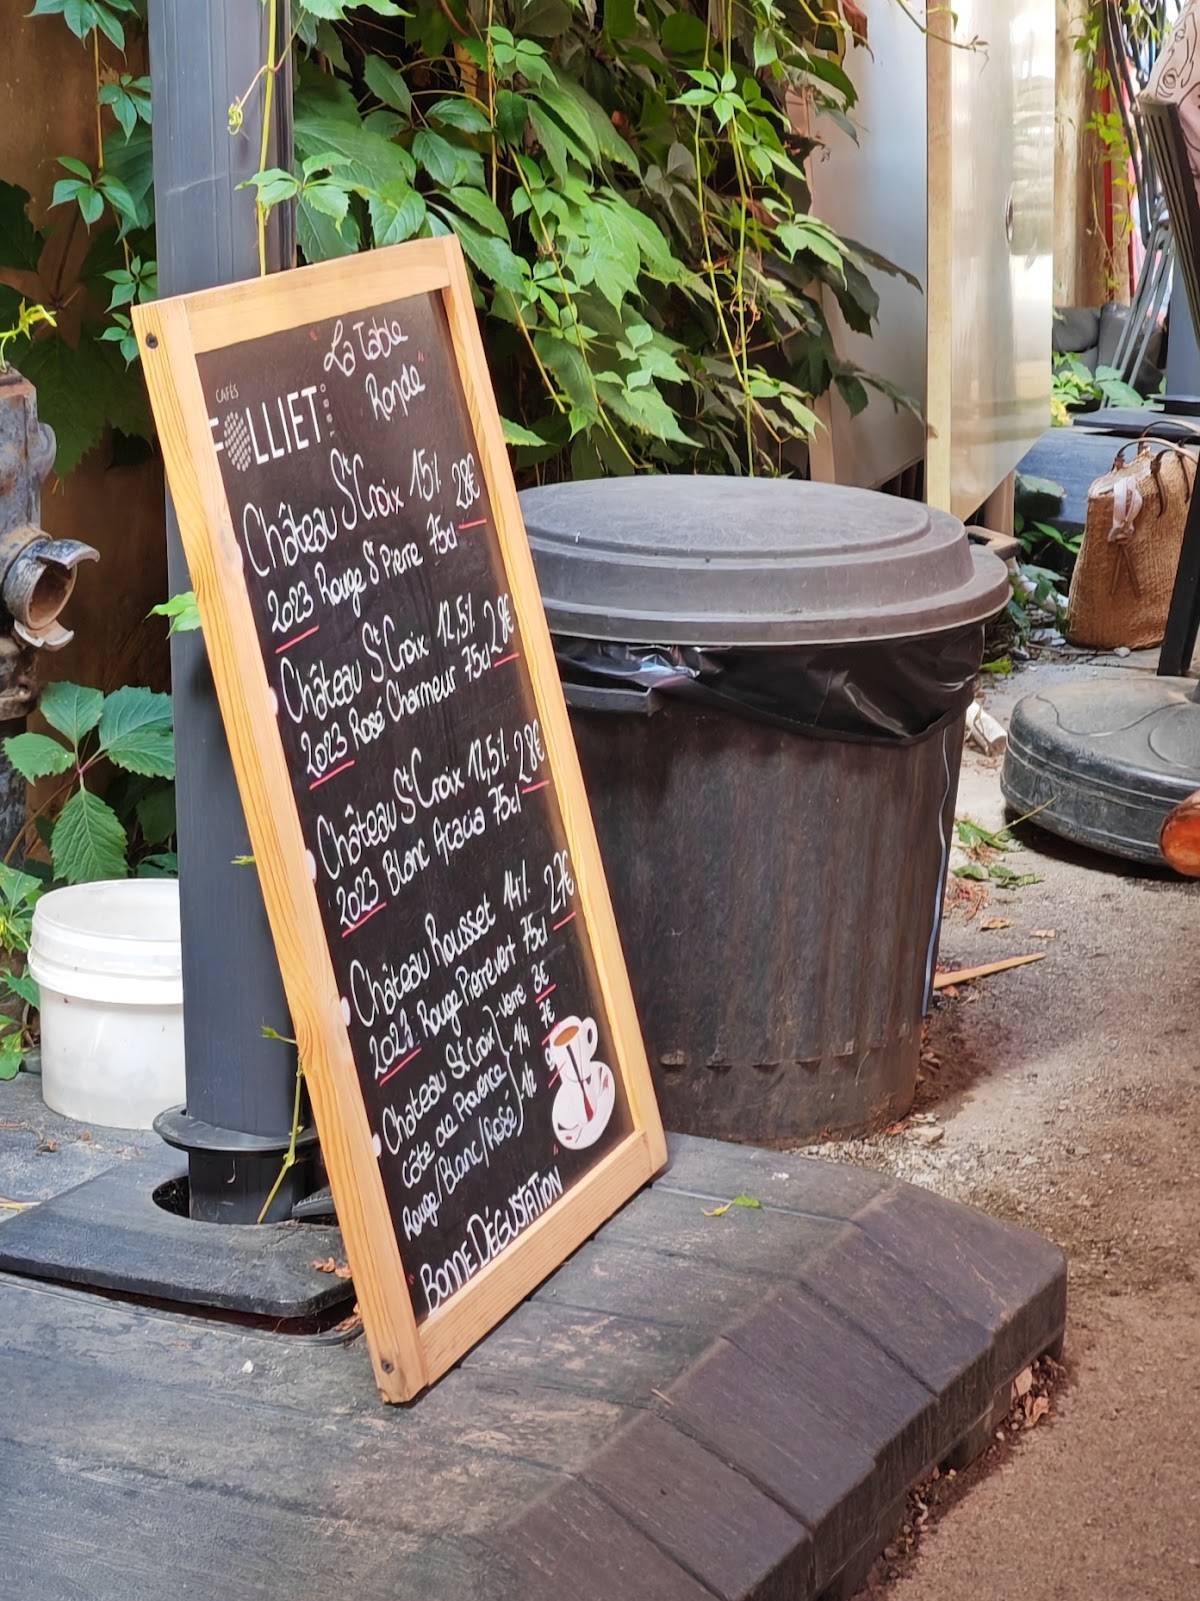 " La Table
Ronde "
CAFÉS
FOLLIET
Château St Croix 15%
2023 Rouge St Pierre 75cl 28€
Château St Croix 12,5%
2023 Rosé Charmeur 75cl 28€
Château St Croix 12,5%
2023 Blanc Acacia 75cl 28€
Château Rousset 14%
Rouge Pierrevert 75cl 27€
Chateau St Croix - verre 3€
Côte de Provence - 1/4 7€
Rouge/Blanc/Rosé - 1/2
" BONNE DÉGUSTATION "